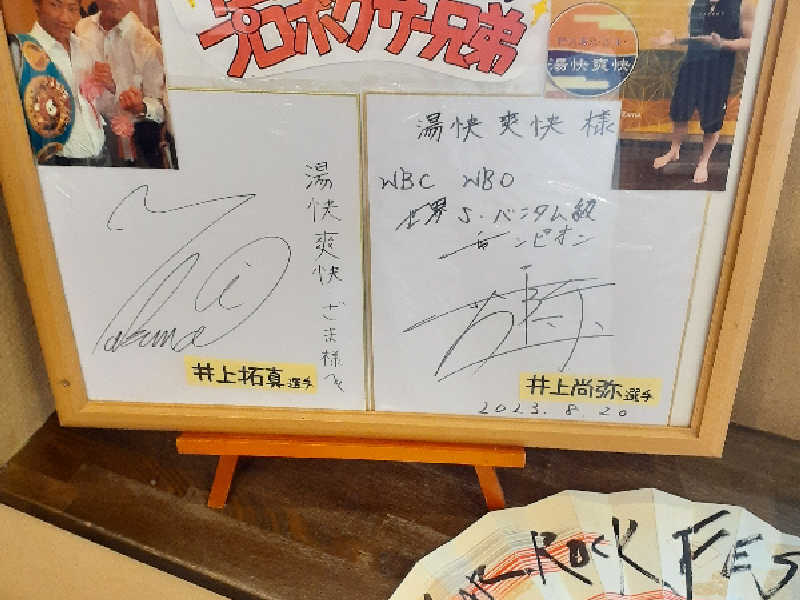 プロボクサー兄弟
湯快爽快
湯快爽快ざま様へ
Takuma
井上拓真選手
湯快爽快様
WBC WBO
世界S・バンタム級
チャンピオン
井上尚弥選手
2023.8.20
ROCK FES